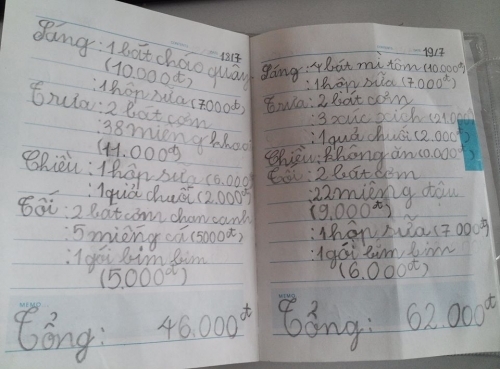 18/7
Sáng: 1 bát cháo quay
(10.000đ)
: 1 hộp sữa (7000đ)
Trưa: 2 bát cơm
: 38 miếng khoai
(11.000đ)
Chiều: 1 hộp sữa (6.000đ)
: 1 quả chuối (2.000đ)
Tối: 2 bát cơm chan canh
: 5 miếng cá (5000đ)
: 1 gói bim bim
(5.000đ)
MEMO
Tổng: 46.000đ
19/7
Sáng: 4 bát mì tôm (10.000đ)
: 1 hộp sữa (7.000đ)
Trưa: 2 bát cơm
: 3 xúc xích (21.000
: 1 quả chuối (2.000đ)
Chiều: không ăn (0.000đ)
Tối: 2 bát cơm
: 22 miếng đậu
(9,000đ)
: 1 hộp sữa (7.000đ)
: 1 gói bim bim
(6.000đ)
MEMO
Tổng: 62.000đ